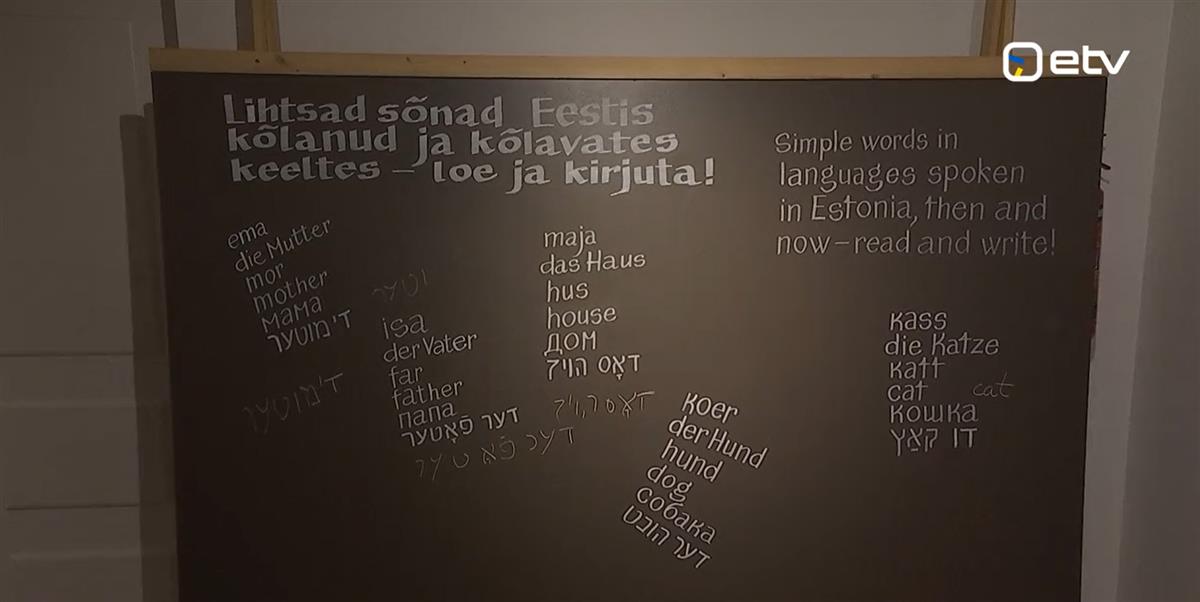 etv
Lihtsad sõnad Eestis
kõlanud ja kõlavates
keeltes – loe ja kirjuta!
Simple words in
languages spoken
in Estonia, then and
now – read and write!
ema
die Mutter
mor
mother
мама
די מוטער
וטער
די מוטער
isa
der Vater
far
father
папа
דער פֿאָטער
דער פֿאָטער
maja
das Haus
hus
house
дом
דאָס הויז
דאָס הויז
koer
der Hund
hund
dog
собака
דער הונט
kass
die Katze
katt
cat
cat
кошка
די קאַץ